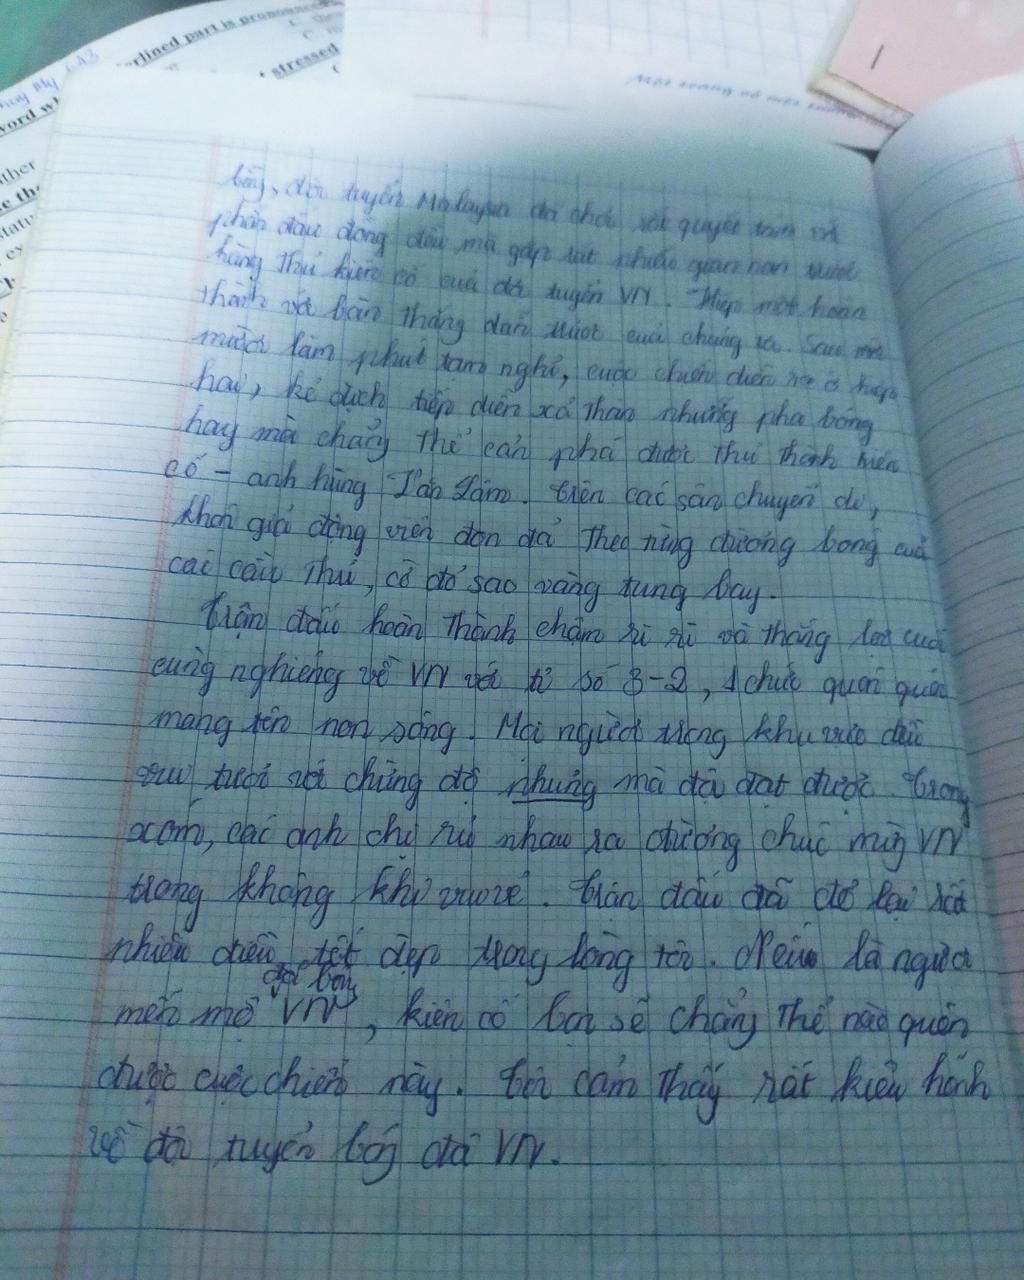 erlined part is pronounce
stressed
word w
ather
bóng, đội tuyển Malaysia đã chơi rất quyết tâm và
phấn đấu đồng đều mà gặp rất nhiều gian nan vượt
hàng thủ kiên cố của đội tuyển VN. Hiệp một hoàn
thành với bàn thắng dẫn trước của chúng ta. Sau
mười lăm phút tạm nghỉ, cuộc chiến diễn ra ở hiệp
hai, kẻ địch tiếp diễn xả thân những pha bóng
hay mà chẳng thể cản phá được thủ thành kiên
cố - anh hùng Tấn Lâm. Trên các sân chuyển đi,
khán giả động viên dồn dả theo từng đường bóng của
các cầu thủ, cờ đỏ sao vàng tung bay.
Trận đấu hoàn thành chậm rì rì và thắng lợi cuối
cùng nghiêng về VN với tỉ số 3-2, 1 chức quán quân
mang tên non sông. Mọi người trong khu vực đều
vui tươi với chừng độ những mà đã đạt được. Trong
xóm, các anh chị rủ nhau ra đường chúc mừng VN
trong không khí vui vẻ. Trận đấu đã để lại rất
nhiều điều tốt đẹp trong lòng tôi. Nếu là người
đội bóng
mến mộ VN, kiên cố bạn sẽ chẳng thể nào quên
được cuộc chiến này. Tôi cảm thấy rất kiêu hãnh
về đội tuyển bóng đá VN.